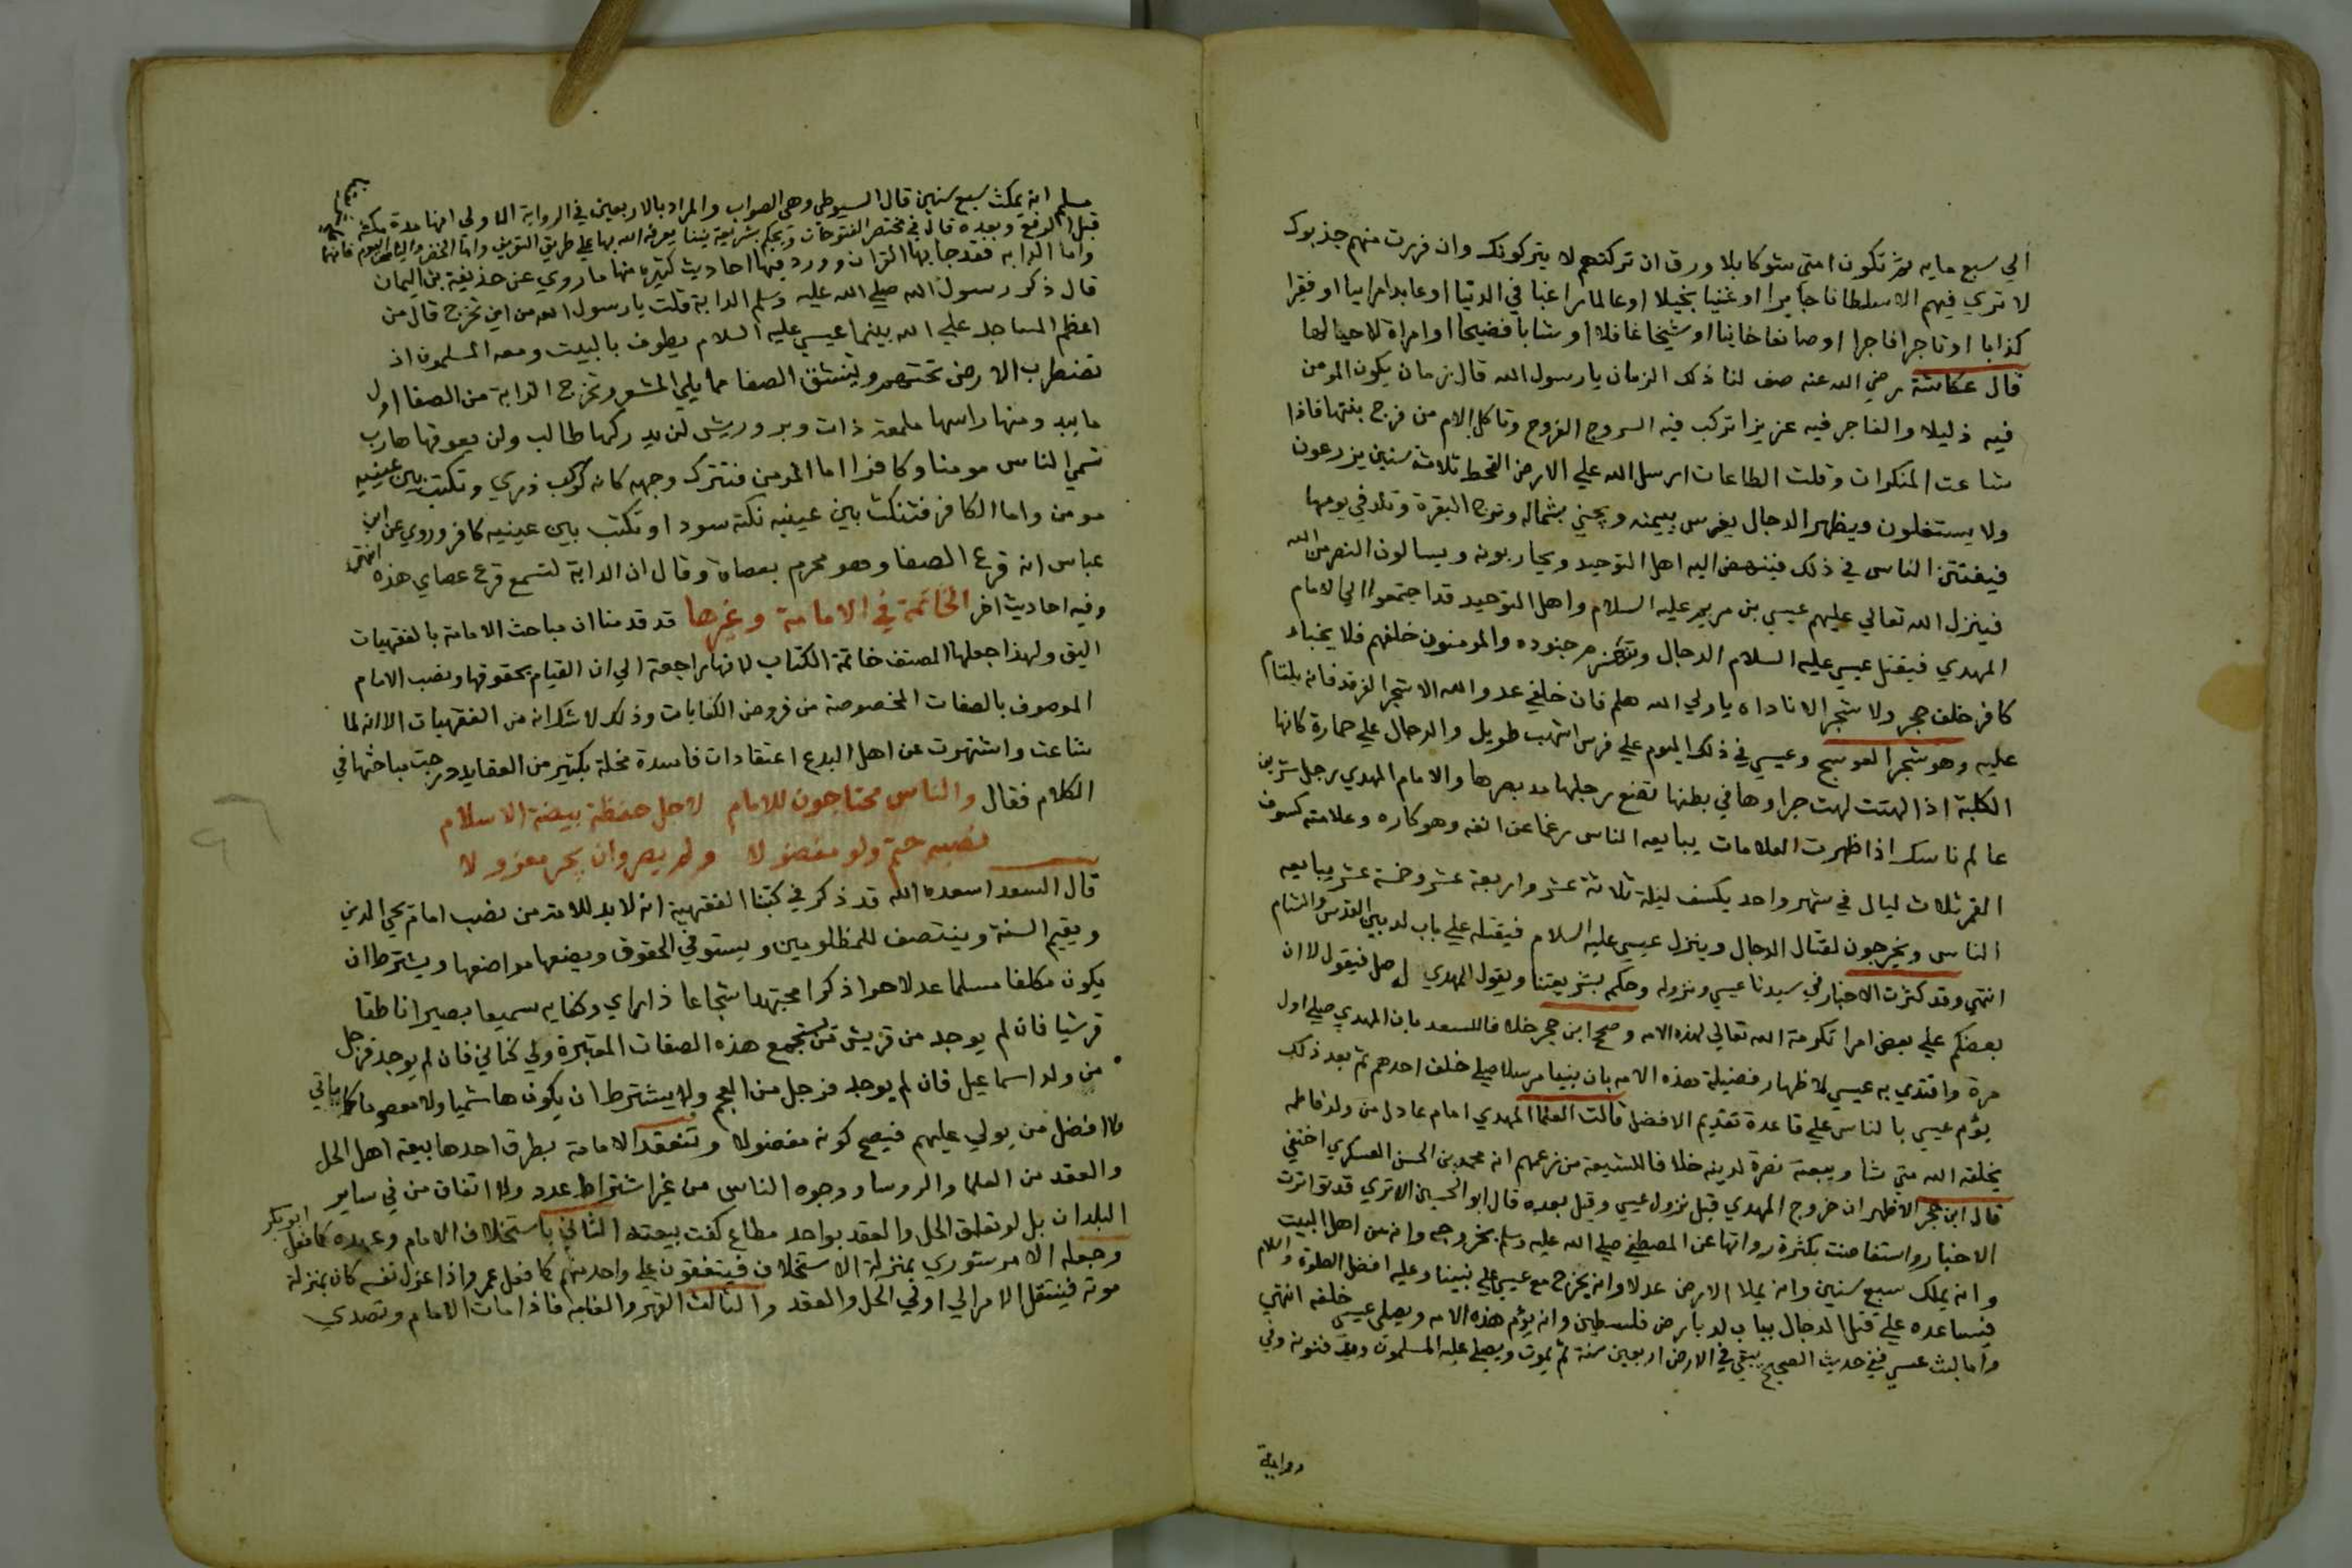 الي سبع مايه ثم تكون امتي شوكا بلا ورق ان تركتهم لا يتركونك وان فررت منهم جذبوك
لا تري فيهم الا سلطانا جايرا او غنيا بخيلا او عالما راغبا في الدنيا او عابدا مراييا او فقيرا
كذابا او تاجرا فاجرا او صانعا خاينا او شيخا غافلا او شابا فضيحا او امراة لا حيا لها
قال عكاشة رضي الله عنه صف لنا ذلك الزمان يا رسول الله قال زمان يكون المومن
فيه ذليلا والفاجر فيه عزيزا تركب فيه السروج الفروج وتاكل الام من فرج بنتها فاذا
شاعت المنكرات وقلت الطاعات ارسل الله علي الارض القحط ثلاث سنين يزرعون
ولا يستغلون ويظهر الدجال يغرس بيمينه ويجني بشماله البقرة وتلد في يومها
فيفتتن الناس في ذلك فينهض اليه اهل التوحيد ويحاربونه ويسالون النصر من الله
فينزل الله تعالي عليهم عيسي بن مريم عليه السلام واهل التوحيد قد اجتمعوا الي الامام
المهدي فيقتل عيسي عليه السلام الدجال جنوده والمومنون خلفهم فلا يختباء
كافر خلف حجر ولا شجر الا ناداه يا ولي الله هلم فان خلفي عدو الله الا شجر الغرقد فانه يلتام
عليه وهو شجر العوسج وعيسي في ذلك اليوم علي فرس اشهب طويل والدجال علي حمارة كانها
الكلبة اذا لهتت لهت جراوها في بطنها تضع رجلها مد بصرها والامام المهدي رجل شرين
عالم ناسك اذا ظهرت العلامات يبايعه الناس رغما عن انفه وهو كاره وعلامته كسوف
القمر ثلاث ليال في شهر واحد يكسف ليلة ثلاثة عشر واربعة عشر وخمسة عشر يبايعه
الناس ويخرجون لقتال الدجال وينزل عيسي عليه السلام فيقتله علي باب لد بين القدس والشام
انتهي وقد كثرت الاخبار في سيدنا عيسي ونزوله وحكم بشريعتنا ويقول المهدي له صل فيقول لا ان
بعضكم علي بعض امرا تكرمة الله تعالي لهذه الامه وصحح ابن حجر خلافا للسعد بان المهدي صلي اول
مرة واقتدي به عيسي لاظهار فضيلة هذه الامه بان بنيا مرسلا صلي خلف احدهم ثم بعد ذلك
يؤم عيسي بالناس علي قاعدة تقديم الافضل قالت العلما المهدي امام عادل من ولد فاطمه
يخلقه الله متي شا ويبعثه نصرة لدينه خلافا للشيعة من زعمهم انه محمد بن الحسن العسكري اختفي
قال ابن حجر الاظهر ان خروج المهدي قبل نزول عيسي وقيل بعده قال ابو الحسين الابري قد تواترت
الاخبار واستفاضت بكثرة رواتها عن المصطفي صلي الله عليه وسلم بخروجه وانه من اهل البيت
وانه يملك سبع سنين وانه يملا الارض عدلا وانه يخرج مع عيسي علي نبينا وعليه افضل الصلوة والسلام
فيساعده علي قتل الدجال بباب لد بارض فلسطين وانه يؤم هذه الامه ويصلي عيسي خلفه انتهي
واما لبث عيسي ففي حديث الصحيح يبقي في الارض اربعين سنة ثم يموت ويصلي عليه المسلمون ويدفنونه وفي
رواية
مسلم انه يمكث سبع سنين قال السيوطي وهي الصواب والمراد بالاربعين في الرواية الاولي انها مدة مكثه
قبل الرفع وبعده قال في مختصر الفتوحات ويحكم بشريعة نبينا يعرفه الله بها علي طريق التعريف واما الخضر والياس
واما الدابه فقد جا بها القران وورد فيها احاديث كثيره منها ما روي عن حذيفة بن اليمان
قال ذكر رسول الله صلي الله عليه وسلم الدابة قلت يا رسول الله من اين تخرج قال من
اعظم المساجد علي الله بينما عيسي عليه السلام يطوف بالبيت ومعه المسلمون اذ
تضطرب الارض تحتهم وينشق الصفا مما يلي المشعر وتخرج الدابة من الصفا اول
ما يبدو منها راسها ملمعة ذات وبر وريش لن يدركها طالب ولن يفوتها هارب
تسمي الناس مومنا وكافرا اما المومن فتترك وجهه كانه كوكب دري وتكتب بين عينيه
مومن واما الكافر فتنكت بين عينيه نكتة سودا وتكتب بين عينيه كافر وروي عن ابن
عباس انه قرع الصفا وهو محرم بعصاه وقال ان الدابة لتسمع قرع عصاي هذه انتهي
وفيه احاديث اخر الخاتمة في الامامة وغيرها قد قدمنا ان مباحث الامامة بالفقهيات
اليق ولهذا جعلها المصنف خاتمة الكتاب لانها راجعة الي ان القيام بحقوقها ونصب الامام
الموصوف بالصفات المخصوصة من فروض الكفايات وذلك لا شك انه من الفقهيات الا انه لما
شاعت واشتهرت عن اهل البدع اعتقادات فاسدة مخلة بكثير من العقايد درجت مباحثها في
الكلام فقال والناس محتاجون للامام لاجل حفظه بيضة الاسلام
نصبه حتم ولو مفضولا ولم يصر وان يجر معزولا
قال السعد اسعده الله قد ذكر في كتبنا الفقهية انه لا بد للامة من نصب امام يحي الدين
ويقيم السنة وينتصف للمظلومين ويستوفي الحقوق ويضعها مواضعها ويشترط ان
يكون مكلفا مسلما عدلا حرا ذكرا مجتهدا شجاعا ذا راي وكفايه سميعا بصيرا ناطقا
قرشيا فان لم يوجد من قريش من يستجمع هذه الصفات المعتبرة ولي كناني فان لم يوجد فرجل
من ولد اسماعيل فان لم يوجد فرجل من العجم ولا يشترط ان يكون هاشميا ولا معصوما كما ياتي
ولا افضل من يولي عليهم فيصح كونه مفضولا وتنعقد الامامة بطرق احدها بيعة اهل الحل
والعقد من العلما والروسا ووجوه الناس من غير اشتراط عدد ولا اتفاق من في ساير
البلدان بل لو تعلق الحل والعقد بواحد مطاع كفت بيعته الثاني باستخلاف الامام وعهده كما فعل ابو بكر
وجعله الامر شوري بمنزلة الاستخلاف فيتفقون علي واحد منهم كما فعل عمر واذا عزل نفسه كان بمنزلة
موته فينتقل الامر الي اولي الحل والعقد والثالث القهر والغلبه فاذا مات الامام وتصدي